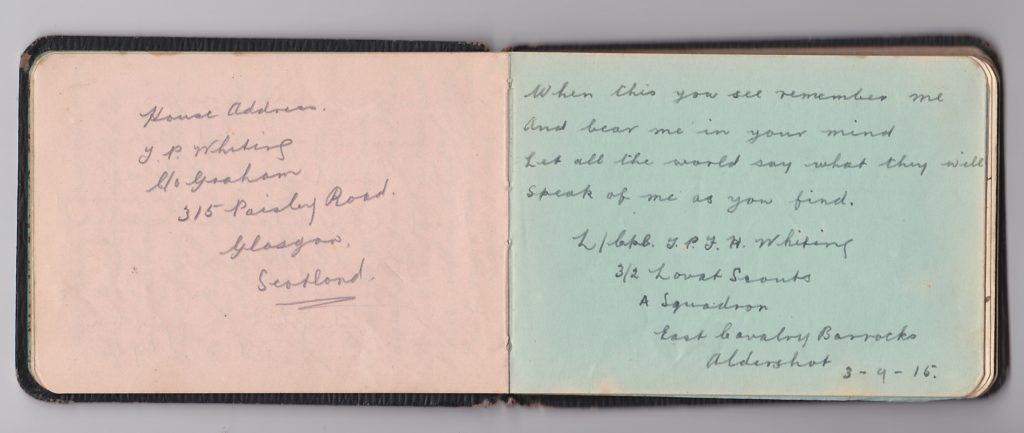 House Address.
J. P. Whiting
C/o Graham
315 Paisley Road.
Glasgow,
Scotland.
When this you see remember me
And bear me in your mind
Let all the world say what they will
Speak of me as you find.
L/Cpl. J. P. J. H. Whiting
3/2 Lovat Scouts
A Squadron
East Cavalry Barrocks
Aldershot 3-9-15.